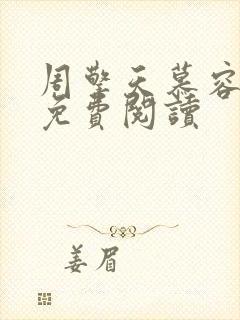 周擎天慕容
免費閱讀
姜眉